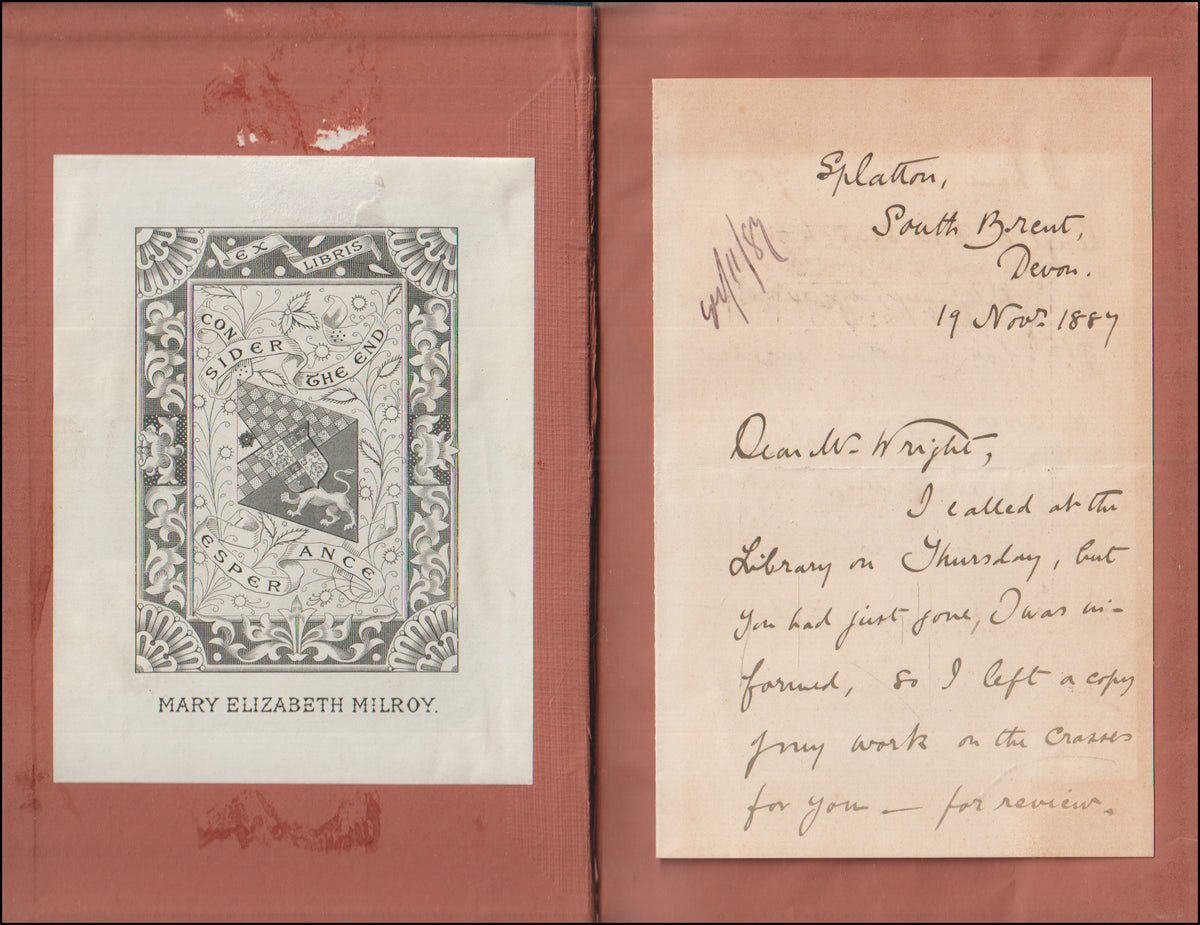 EX LIBRIS
CON
SIDER THE END
ESPER ANCE
MARY ELIZABETH MILROY.
Splatton,
South Brent,
Devon.
/11/87
19 Novr. 1887
Dear Mr Wright,
I called at the
Library on Thursday, but
you had just gone, I was in-
formed, so I left a copy
of my work on the Crosses
for you — for review.